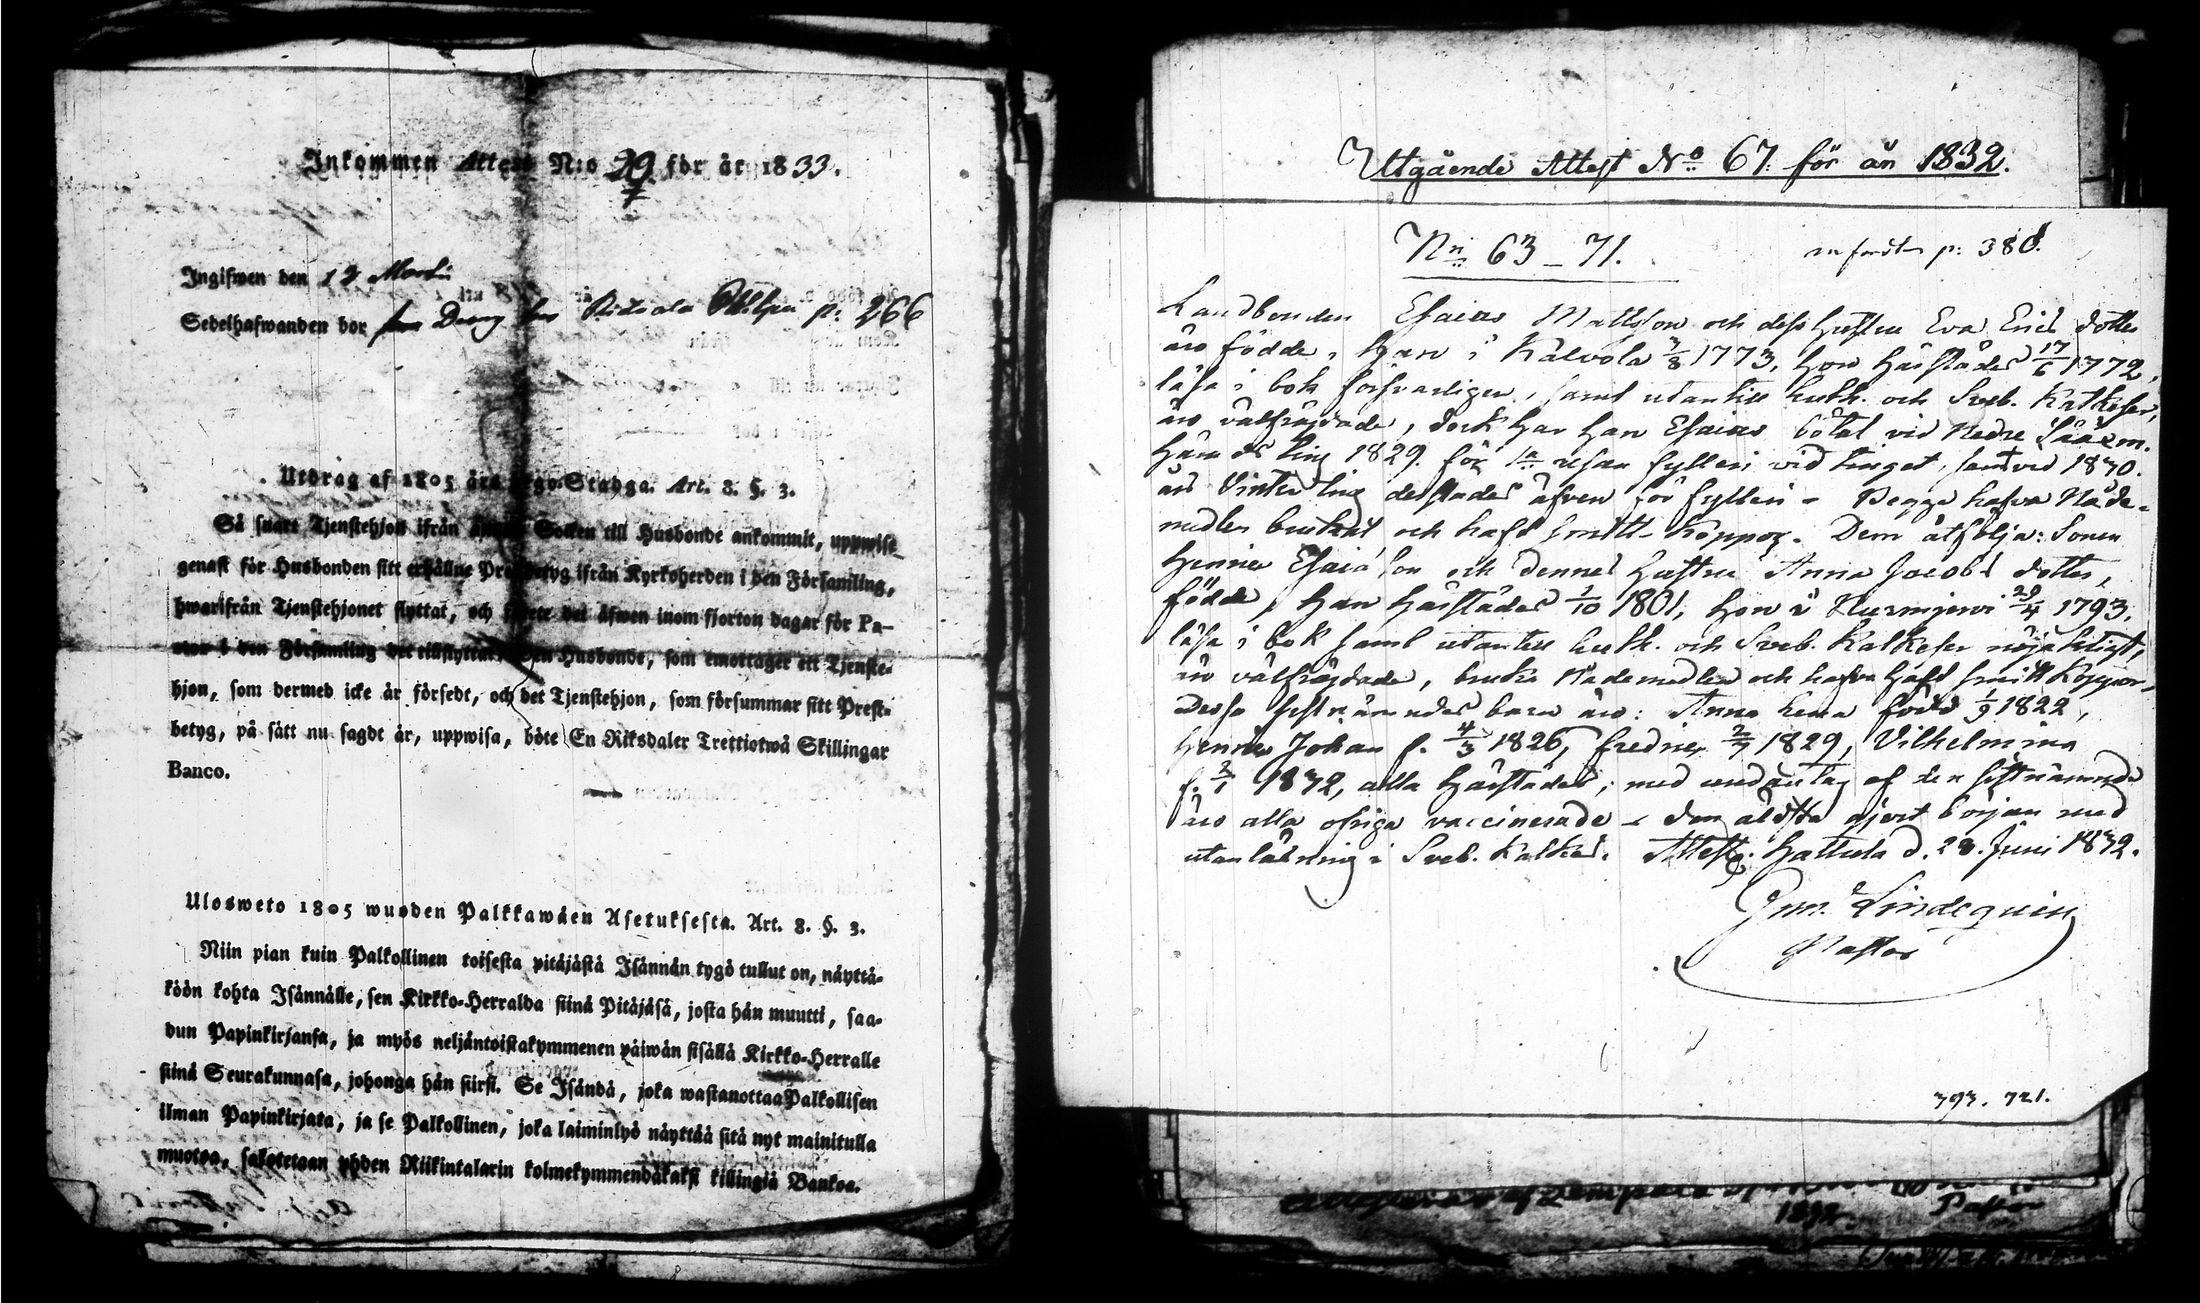 Inkommen Attest N:o 29 för år 1833.
Ingifwen den 12 Martii
Sedelhafwanden bor p: 266
Utdrag af 1805 års Lego-Stadga. Art. 8. §. 3.
Så snart Tjenstehjon ifrån annan Socken till Husbonde ankommit, uppwise
genast för Husbonden sitt erhållne Prestbetyg ifrån Kyrkoherden i den Församling,
hwarifrån Tjenstehjonet flyttat, och det äfwen inom fjorton dagar för Pa-
stor i den Församling det tillflyttat. Den Husbonde, som emottager ett Tjenste-
hjon, som dermed icke är försedt, och det Tjenstehjon, som försummar sitt Prest-
betyg, på sätt nu sagdt är, uppwisa, böte En Riksdaler Trettiotwå Skillingar
Banco.
Ulosweto 1805 wuoden Palkkawäen Asetuksesta. Art. 8. §. 3.
Niin pian kuin Palkollinen toisesta pitäjästä Isännän tygö tullut on, näyttä-
köön kohta Isännälle, sen Kirkko-Herralda siinä Pitäjäsä, josta hän muutti, saa-
dun Papinkirjansa, ja myös neljäntoistakymmenen päiwän sisällä Kirkko-Herralle
siinä Seurakunnasa, johonga hän siirsi. Se Isändä, joka wastanottaa Palkollisen
ilman Papinkirjata, ja se Palkollinen, joka laiminlyö näyttää sitä nyt mainitulla
muotoa, sakotetaan yhden Riikintalarin kolmekymmendäkaksi killingiä Bankoa.
Utgående Attest No 67 för år 1832.
Nri 63-71. p: 380.
Landbonden Esaias Mattsson och dess hustru Eva Erics dotter
äro födde, han i Kalvola 3/8 1773, hon härstädes 17/6 1772,
läsa i bok försvarligen, samt utantill Luth. och Sveb. Katkeser,
äro välfrejdade, dock har han Esaias bötat vid Nedre Sääxm.
härads ting 1829 för 1a resan fylleri vid tinget, samt vid 1830
års Vinter ting derstädes äfven för fylleri - Begge hafva Nåde-
medlen brukat och haft smitt-koppor. Dem åtfölja: Sonen
Henric Esaiasson och dennes hustru Anna Jacobs dotter,
födde, han härstädes 1/10 1801, hon i Kurmjervi 29/4 1793,
läsa i bok samt utantill Luth. och Sveb. Katkeser nöjaktigt,
äro välfrejdade, bruka Nådemedlen och hafva haft smitt Koppor,
Dessa sistnämndes barn äro: Anna Lena född 1/9 1822,
Henric Johan f. 4/3 1826, Fredric 2/7 1829, Vilhelmina
f. 2/1 1832, alla härstädes; med undantag af den sistnämnde
äro alla öfriga vaccinerade - den äldsta gjort början med
utanläsning i Sveb. Katkes. Attest. Hattula d. 28. Juni 1832.
Lindequin
Pastor
393. 721.
1832.
Pastor